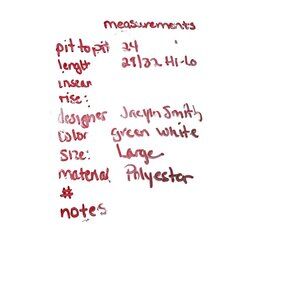 measurements
pit to pit 24
lenght 28/32 Hi-Lo
inseam
rise:
designer Jaclyn Smith
Color green white
Size: Large
material Polyestor
#
notes